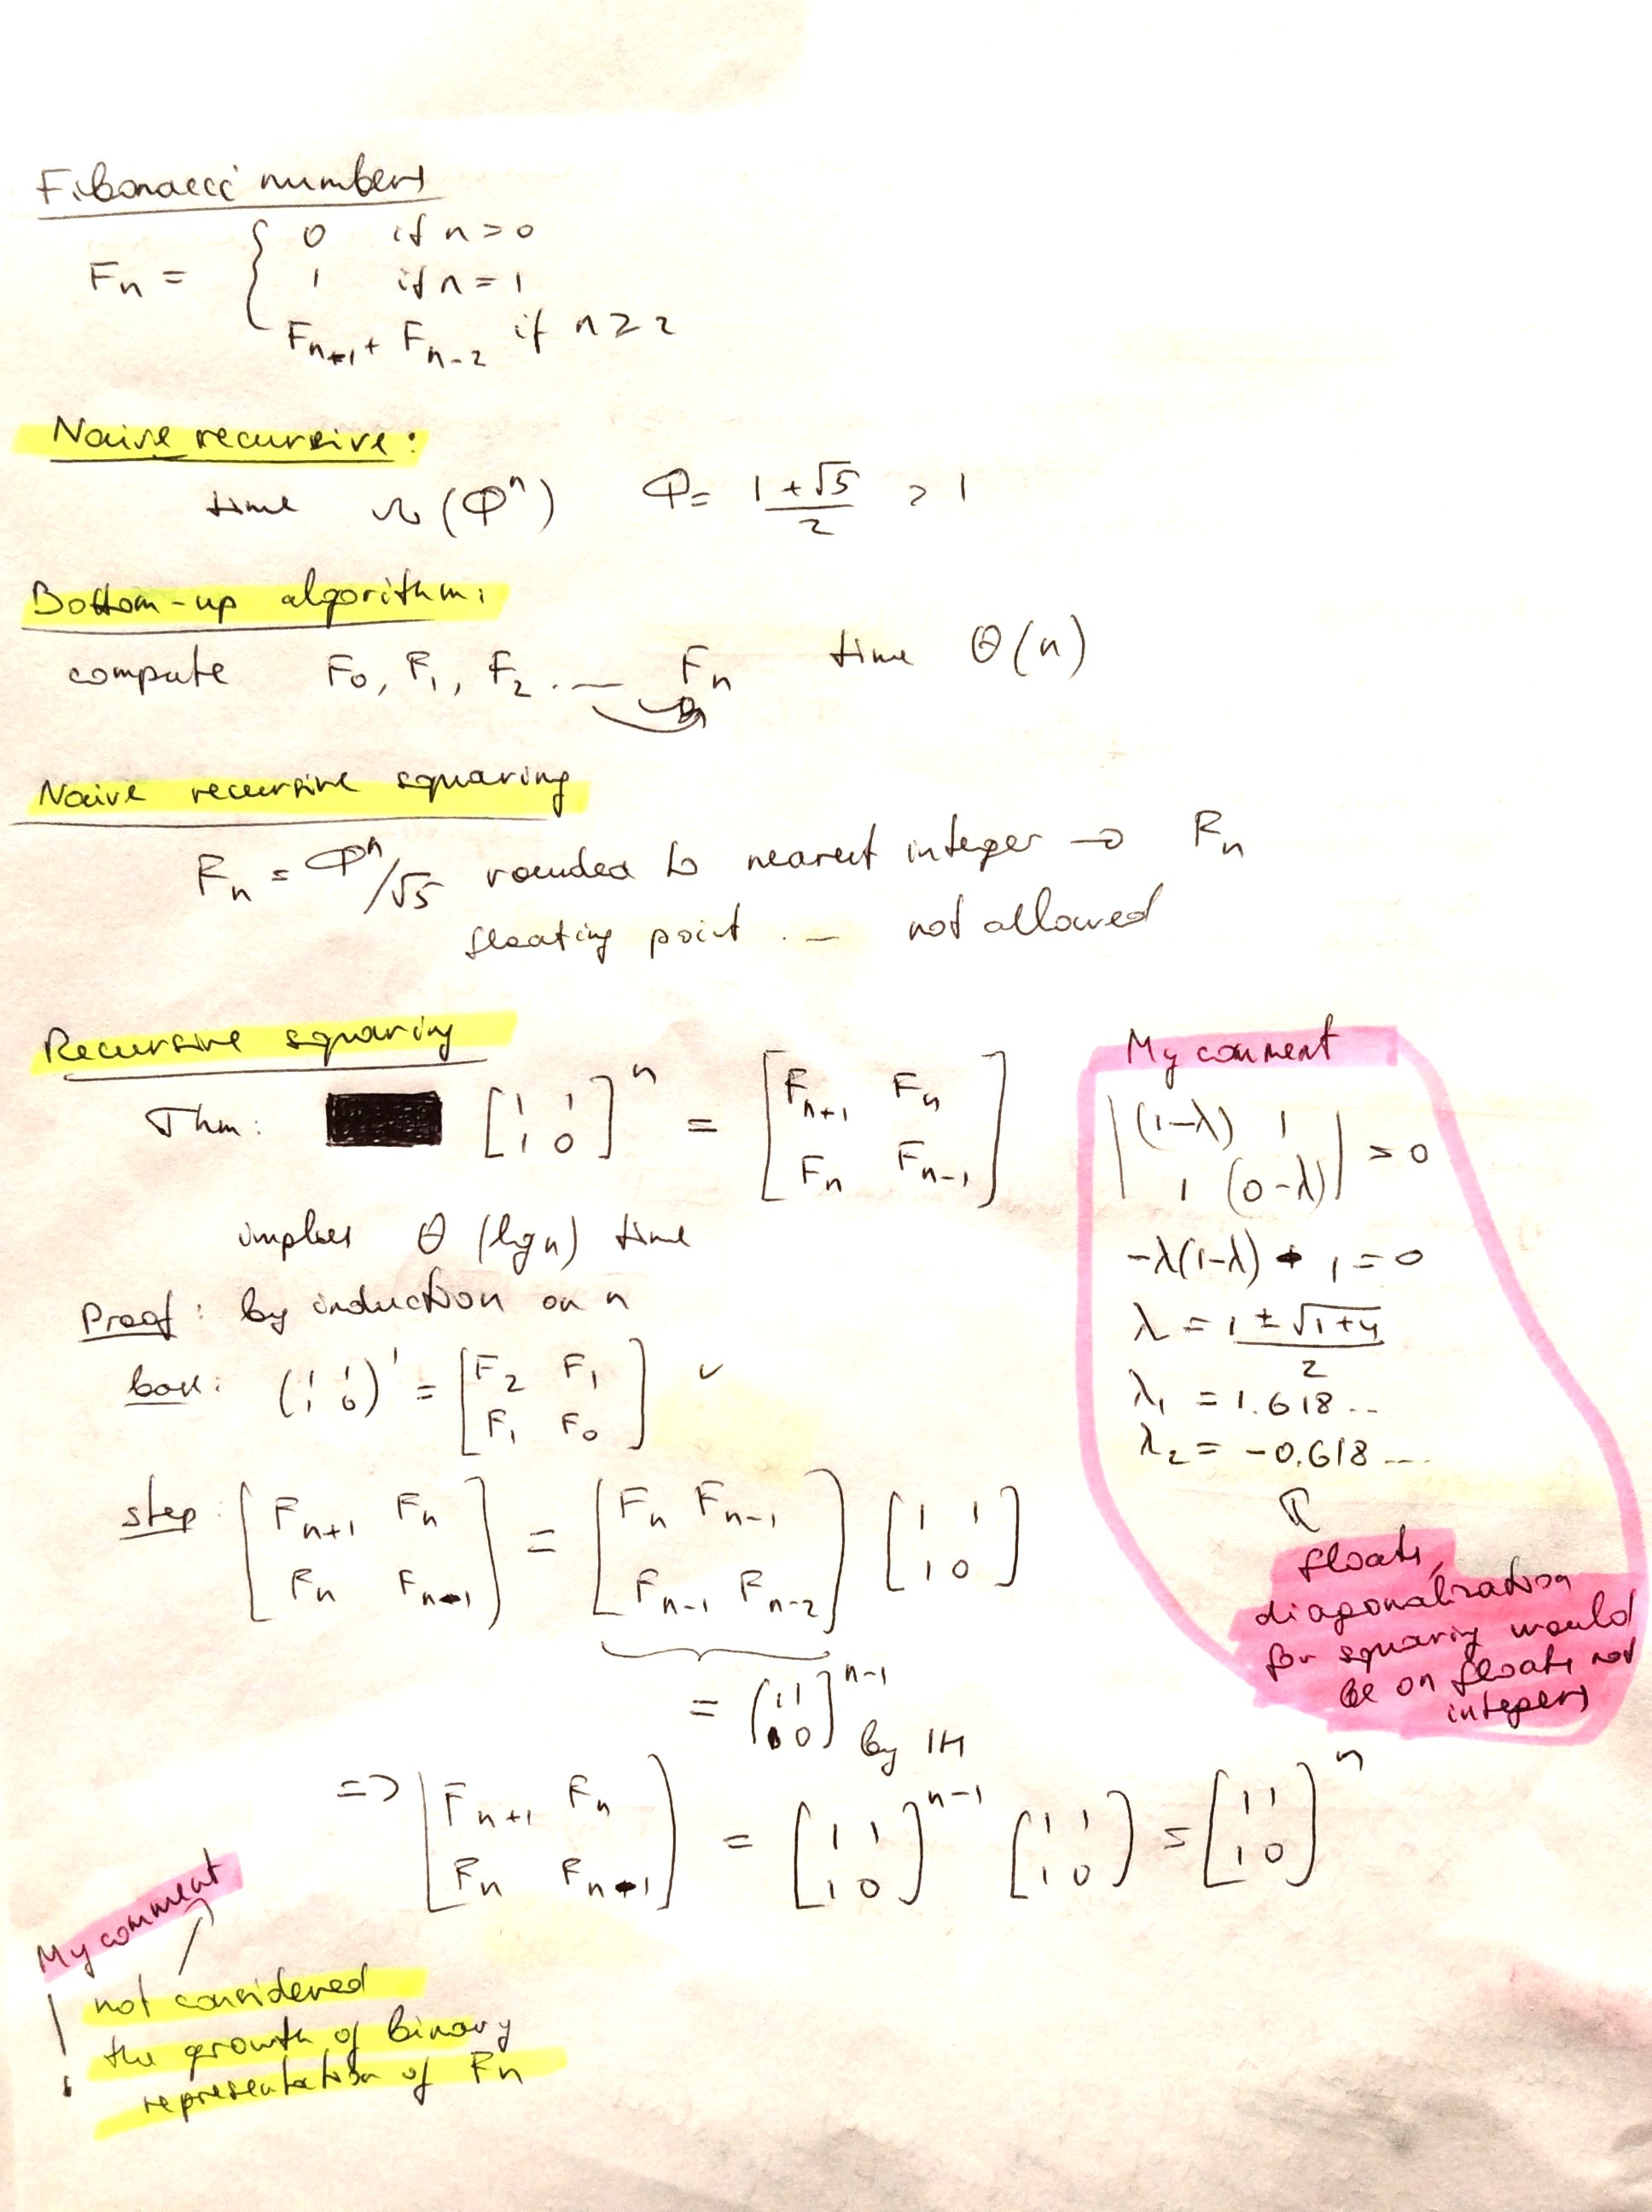 Fibonacci numbers
F_n = { 0 if n = 0
1 if n = 1
F_{n-1} + F_{n-2} if n ≥ 2
Naive recursive:
time Ω(φ^n) φ = (1 + √5)/2 > 1
Bottom-up algorithm:
compute F_0, F_1, F_2 ... F_n time Θ(n)
Naive recursive squaring
F_n = φ^n/√5 rounded to nearest integer → F_n
floating point ... not allowed
Recursive squaring
Thm: [1 1; 1 0]^n = [F_{n+1} F_n; F_n F_{n-1}]
implies Θ(lg n) time
Proof: by induction on n
base: (1 1; 1 0)^1 = [F_2 F_1; F_1 F_0] ✓
step: [F_{n+1} F_n; F_n F_{n-1}] = [F_n F_{n-1}; F_{n-1} F_{n-2}] [1 1; 1 0]
= [1 1; 1 0]^{n-1} by IH
=> [F_{n+1} F_n; F_n F_{n-1}] = [1 1; 1 0]^{n-1} [1 1; 1 0] = [1 1; 1 0]^n
My comment
|(1-λ) 1; 1 (0-λ)| = 0
-λ(1-λ) - 1 = 0
λ = (1 ± √1+4)/2
λ_1 = 1.618...
λ_2 = -0.618...
floats,
diagonalization
for squaring would
be on floats not
integers
My comment
! not considered
the growth of binary
representation of F_n